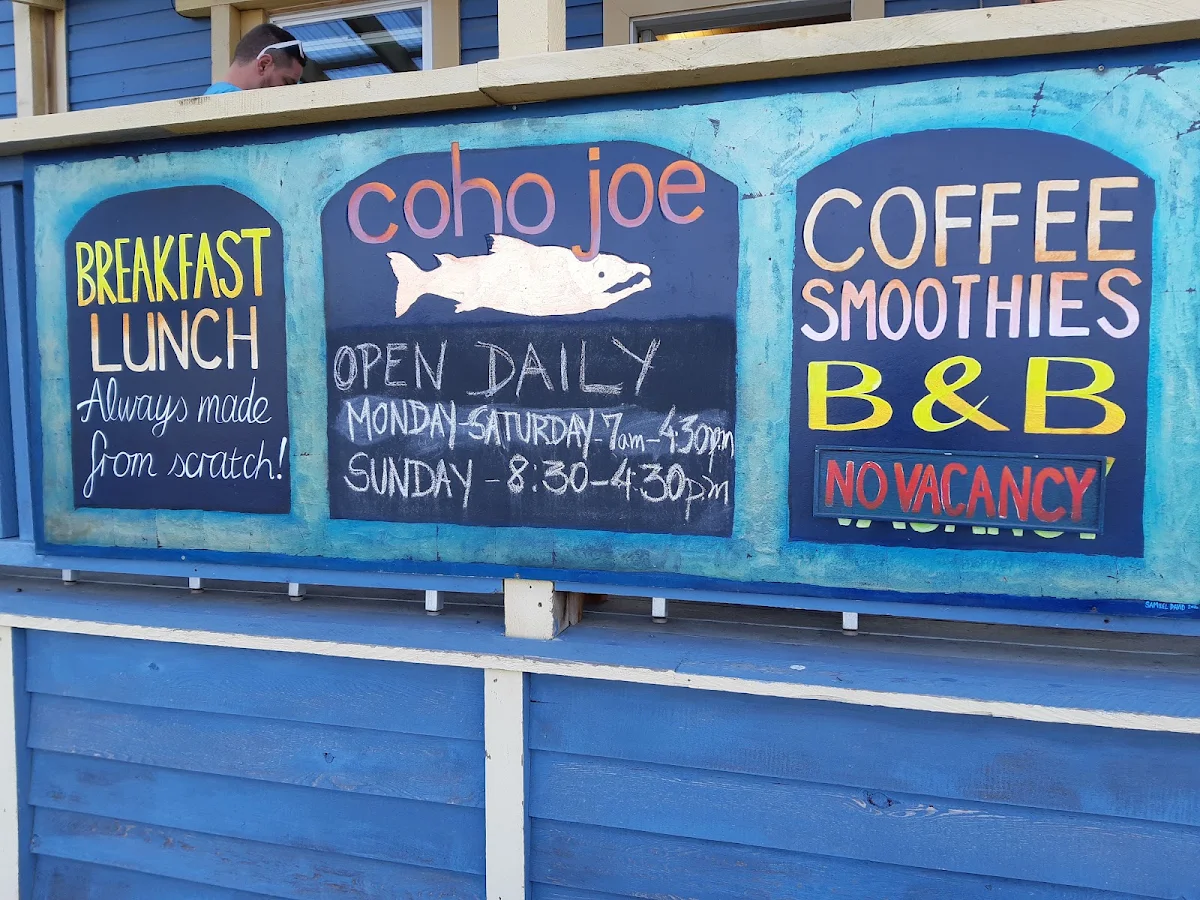 BREAKFAST
LUNCH
Always made
from scratch!
coho joe
OPEN DAILY
MONDAY-SATURDAY-7am-4:30pm
SUNDAY - 8:30-4:30pm
COFFEE
SMOOTHIES
B&B
NO VACANCY
VACANCY
SAMUEL DAVID